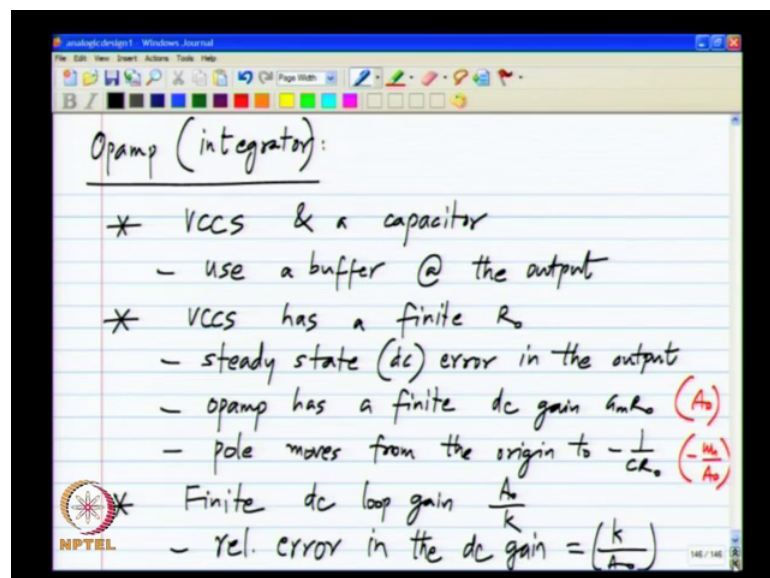 analogicdesign1 - Windows Journal
File Edit View Insert Actions Tools Help
Page Width
B I
Opamp (integrator):
* VCCS & a capacitor
- use a buffer @ the output
* VCCS has a finite R₀
- steady state (dc) error in the output
- opamp has a finite dc gain GmR₀ (A₀)
- pole moves from the origin to -1/CR₀ (-ωᵤ/A₀)
* Finite dc loop gain A₀/k
- rel. error in the dc gain = (k/A₀)
NPTEL
146 / 146